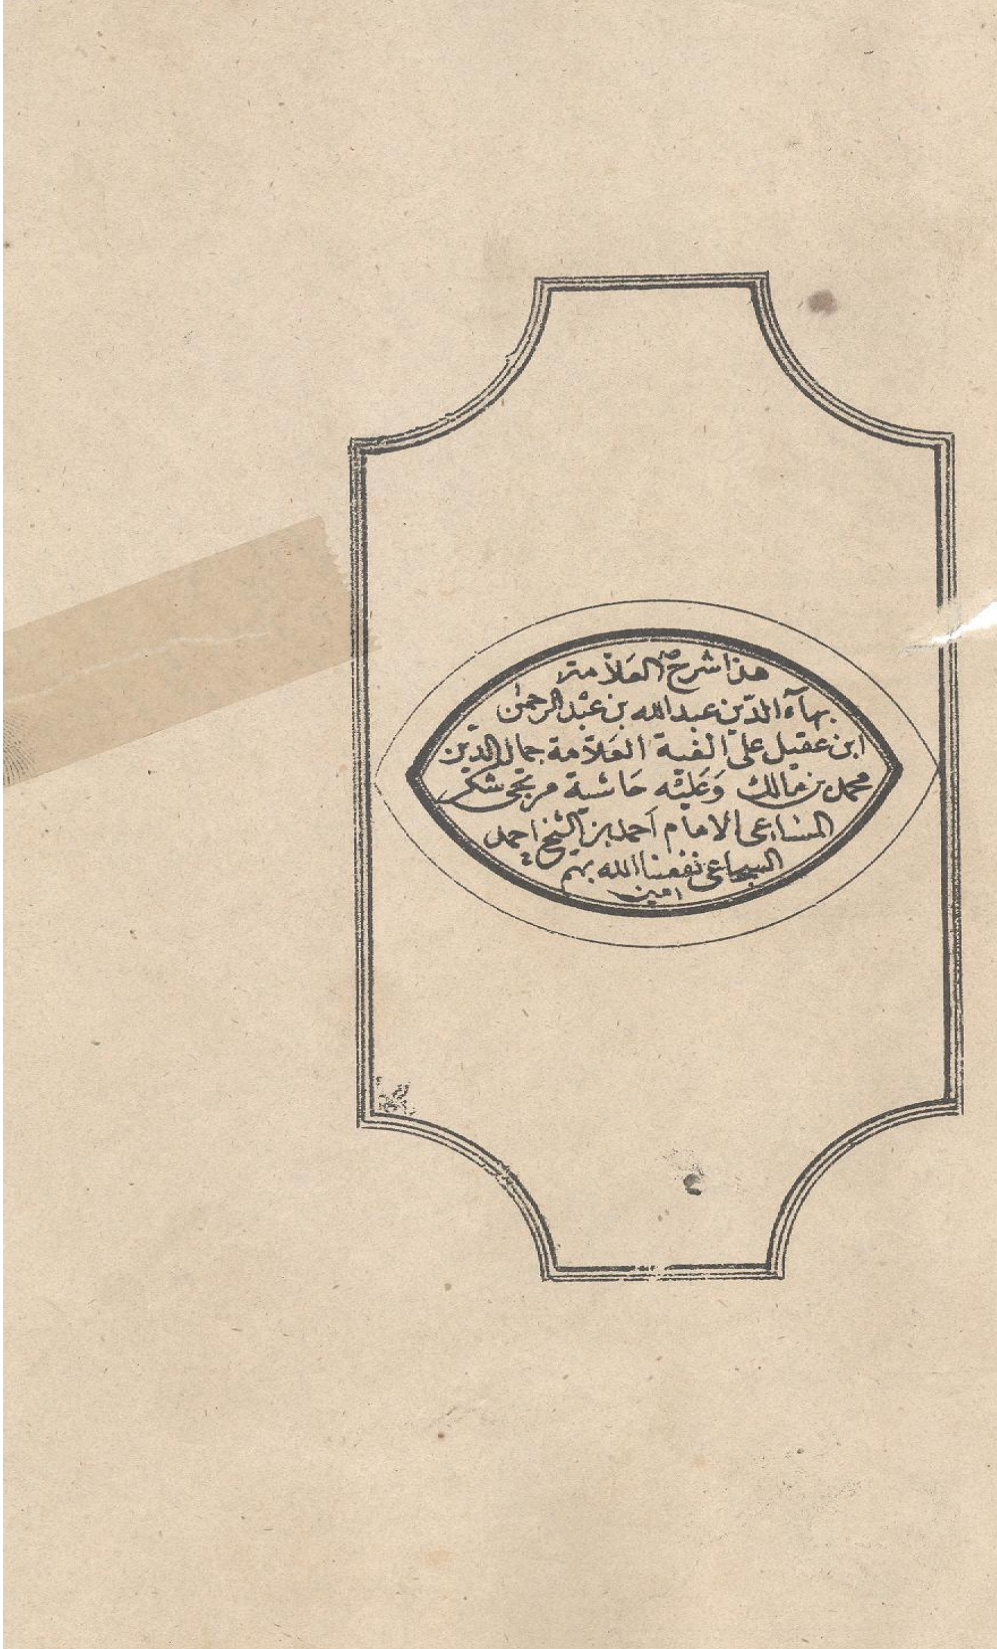 هذا شرح العَلاّمة
بهآء الدّين عبد الله بن عبْد الرحمٰن
ابن عقيل على الفية العَلاّمة جمال الدّين
محمد بن مالك وَعَليْه حَاشية مرتجى شكر
المساعى الامام اَحمد بن الشيخ احمد
السجاعى نفعنا الله بهم
امين